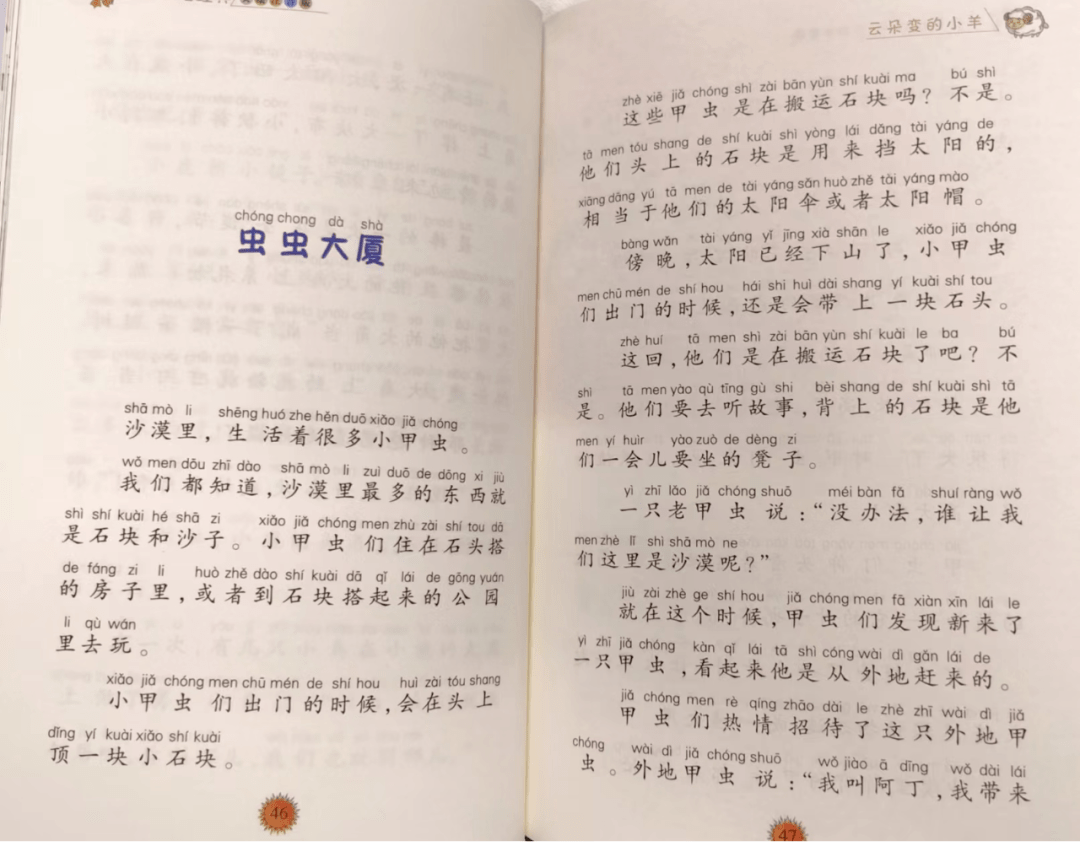 chóng chong dà shà
虫虫大厦
shā mò li shēng huó zhe hěn duō xiǎo jiǎ chóng
沙漠里，生活着很多小甲虫。
wǒ men dōu zhī dào shā mò li zuì duō de dōng xi jiù
我们都知道，沙漠里最多的东西就
shì shí kuài hé shā zi xiǎo jiǎ chóng men zhù zài shí tou dā
是石块和沙子。小甲虫们住在石头搭
de fáng zi li huò zhě dào shí kuài dā qǐ lái de gōng yuán
的房子里，或者到石块搭起来的公园
li qù wán
里去玩。
xiǎo jiǎ chóng men chū mén de shí hou huì zài tóu shang
小甲虫们出门的时候，会在头上
dǐng yí kuài xiǎo shí kuài
顶一块小石块。
46
云朵变的小羊
zhè xiē jiǎ chóng shì zài bān yùn shí kuài ma bú shì
这些甲虫是在搬运石块吗？不是。
tā men tóu shang de shí kuài shì yòng lái dǎng tài yáng de
他们头上的石块是用来挡太阳的，
xiāng dāng yú tā men de tài yáng sǎn huò zhě tài yáng mào
相当于他们的太阳伞或者太阳帽。
bàng wǎn tài yáng yǐ jīng xià shān le xiǎo jiǎ chóng
傍晚，太阳已经下山了，小甲虫
men chū mén de shí hou hái shi huì dài shang yí kuài shí tou
们出门的时候，还是会带上一块石头。
zhè huí tā men shì zài bān yùn shí kuài le ba bú
这回，他们是在搬运石块了吧？不
shì tā men yào qù tīng gù shi bèi shang de shí kuài shì tā
是。他们要去听故事，背上的石块是他
men yí huìr yào zuò de dèng zi
们一会儿要坐的凳子。
yì zhī lǎo jiǎ chóng shuō méi bàn fǎ shuí ràng wǒ
一只老甲虫说：“没办法，谁让我
men zhè lǐ shì shā mò ne
们这里是沙漠呢？”
jiù zài zhè ge shí hou jiǎ chóng men fā xiàn xīn lái le
就在这个时候，甲虫们发现新来了
yì zhī jiǎ chóng kàn qǐ lái tā shì cóng wài dì gǎn lái de
一只甲虫，看起来他是从外地赶来的。
jiǎ chóng men rè qíng zhāo dài le zhè zhī wài dì jiǎ
甲虫们热情招待了这只外地甲
chóng wài dì jiǎ chóng shuō wǒ jiào ā dīng wǒ dài lái
虫。外地甲虫说：“我叫阿丁，我带来
47